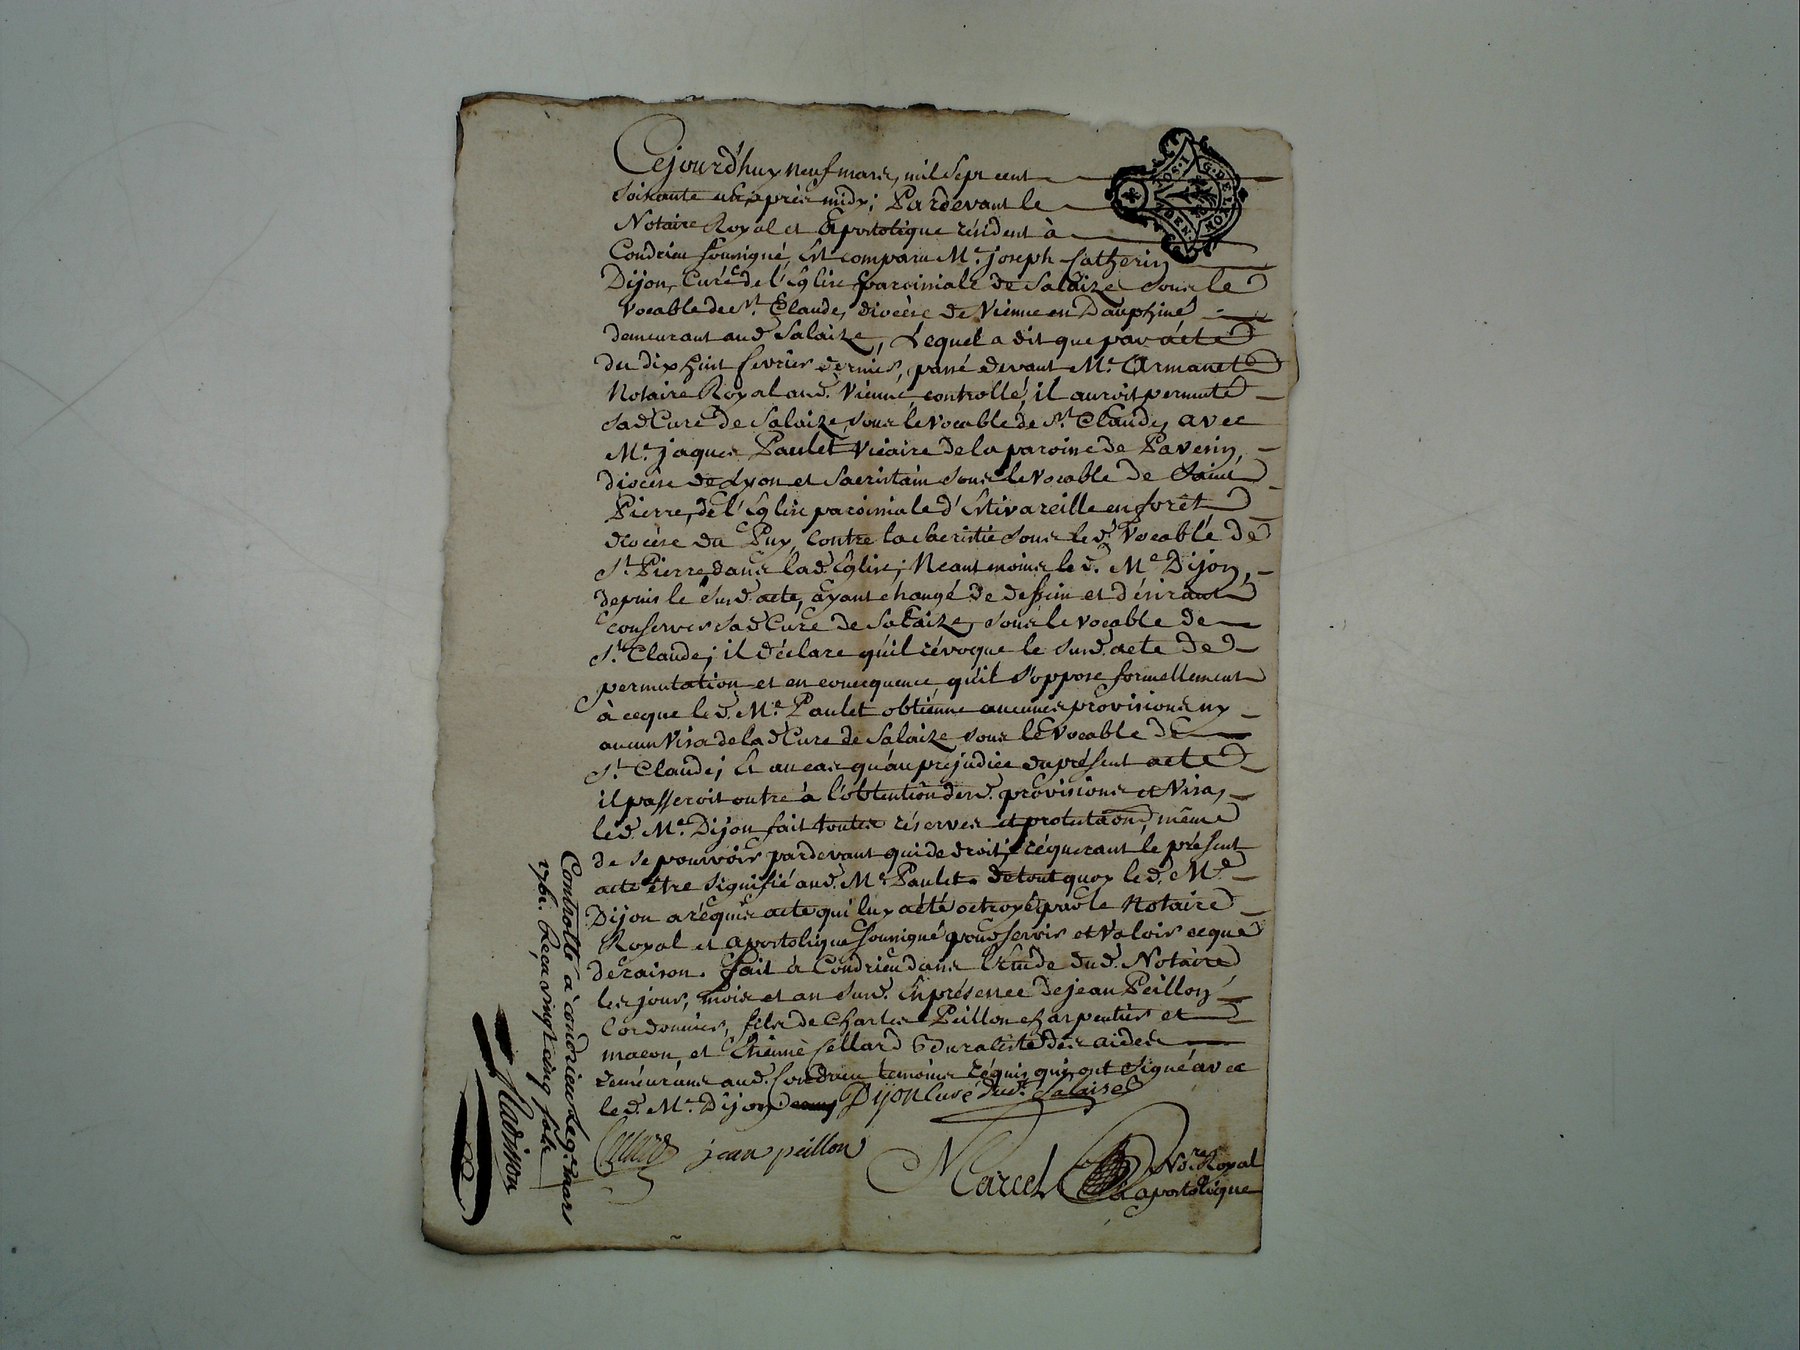 Cejourd'huy neuf mars, mil sept cent
soixante un, après midy; Pardevant le
Notaire Royal et Apostolique résident à
Condrieu soussigné, Est comparu Mre. joseph Catherin
Dijon, Curé de l'Eglise paroissiale de Salaize sous le
vocable de st. Claude, diocèse de Vienne en Dauphiné
demeurant aud. Salaize, Lequel a dit que par acte
du dix huit fevrier dernier, passé devant Me. Armanet
Notaire Royal aud. Vienne, controllé, il auroit permuté
sad. Cure de Salaize, sous le vocable de st. Claude, avec
Mre. jaques Paulet Vicaire de la paroisse de Pavesin,
diocèse de Lyon et Sacristain sous le Vocable de Saint
Pierre, de l'Eglise paroissiale d'Estivareille en forêt
diocèse du Puy, contre la sacristie sous led. Vocable de
St. Pierre dans lad. Eglise; Neantmoins led. Mre Dijon,
depuis le susd. acte, ayant changé de dessein et désirant
conserver sad. Cure de Salaize, sous le vocable de
St. Claude; il déclare qu'il révoque le susd. acte de
permutation et en consequence, qu'il s'oppose formellement
à ceque led. Mre. Paulet obtienne aucunes provisions ny
aucun Visa de lad. Cure de Salaize sous le Vocable de
St. Claude; Et au cas qu'au préjudice du présent acte
il passeroit outre à l'obtention desd. provisions et Visa,
led. Mre. Dijon fait toutes réserves et protestations, même
de se pourvoir pardevant qui de droit, réquerant le présent
acte être signifié aud. Mre Paulet. de tout quoy led. Mre
Dijon a réquis acte qui luy a été octroyé par le Notaire
Royal et apostolique soussigné pour servir et Valoir ceque
de raison. fait à Condrieu dans l'Etude dud. Notaire
les jour, mois et an susd. En présence de jean Peillon
Cordonnier, fils de Charles Peillon charpentier et
macon, et Etienne Cellard Buraliste des aides
demeurans aud. Condrieu témoins réquis qui ont signé avec
led. Mre. Dijon Dijon Curé dud. Salaise
Cellard jean peillon
Marcel Nore. Royal
& apostolique
Controllé à condrieu le 9e. mars
1761. Reçu vingt cinq sols
G. DE LYON